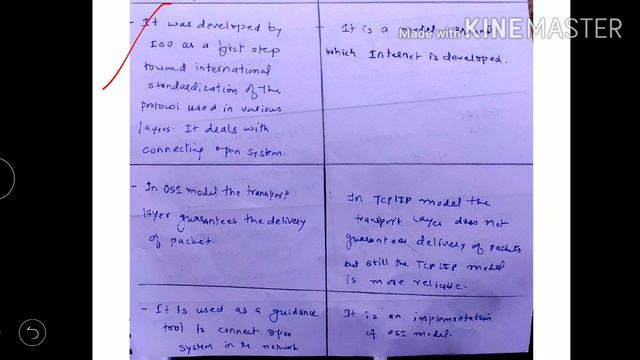 - It was developed by
ISO as a first step
toward international
standardization of the
protocol used in various
layers. It deals with
connecting open system.
It is a model around
which Internet is developed.
Made with KINEMASTER
- In OSI model the transport
layer guarantees the delivery
of packet.
In TCP/IP model the
transport layer does not
guarantees delivery of packets
but still the TCP/IP model
is more reliable.
- It is used as a guidance
tool to connect open
system in the network
It is an implementation
of OSI model.